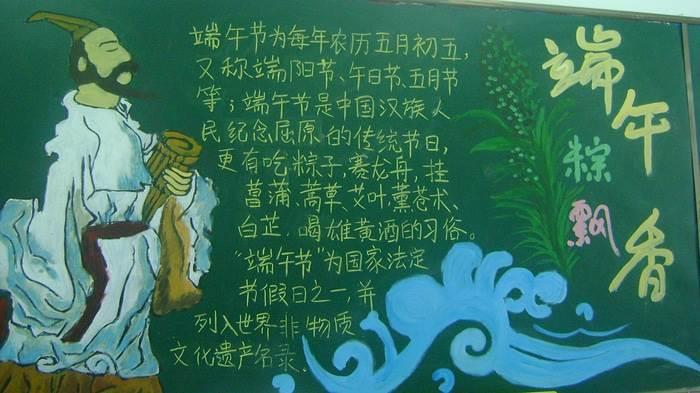 端午节为每年农历五月初五,
又称端阳节、午日节、五月节
等;端午节是中国汉族人
民纪念屈原的传统节日,
更有吃粽子,赛龙舟,挂
菖蒲、蒿草、艾叶,薰苍术、
白芷,喝雄黄酒的习俗。
"端午节"为国家法定
节假日之一,并
列入世界非物质
文化遗产名录.
端午
粽
飘
香